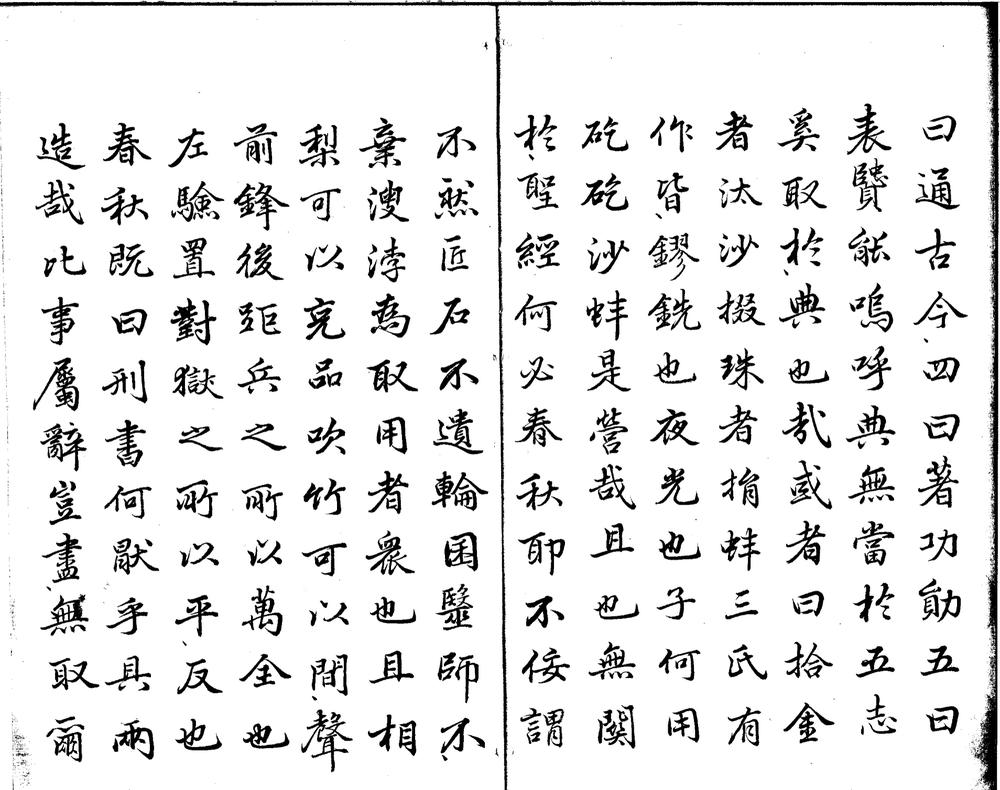 曰通古今四曰著功勛五曰
表賢能嗚呼典無當於五志
奚取於典也哉或者曰拾金
者汰沙掇珠者捐蚌三氏有
作皆鏐銑也夜光也子何用
矻矻沙蚌是營哉且也無関
於聖經何必春秋耶不佞謂
不然匠石不遺輪囷毉師不
棄溲浡為取用者衆也且相
梨可以充品吹竹可以間聲
前鋒後距兵之所以萬全也
左驗置對獄之所以平反也
春秋既曰刑書何厭乎具兩
造哉比事屬辭豈盡無取爾